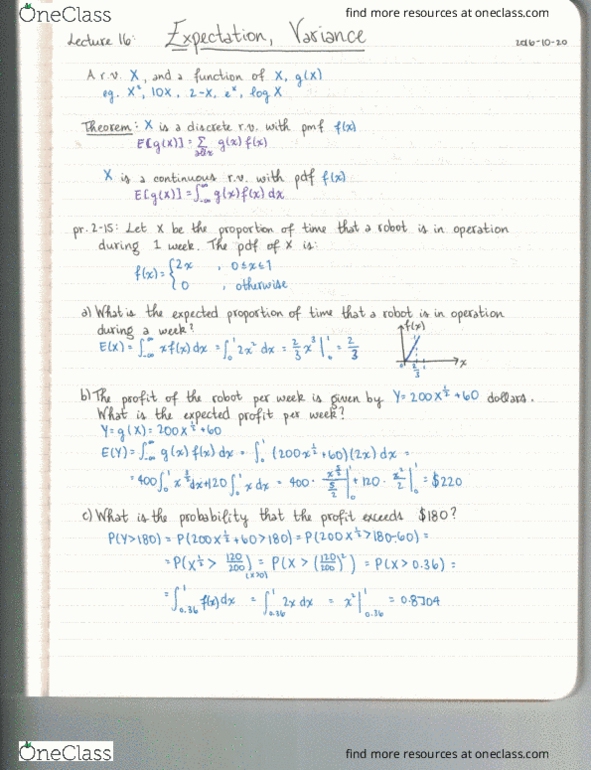 OneClass
find more resources at oneclass.com
Lecture 16: Expectation, Variance 2016-10-20
A r.v. X, and a function of X, g(X)
eg. X², 10X, 2-X, eˣ, log X
Theorem: X is a discrete r.v. with pmf f(x)
E[g(X)] = Σ g(x) f(x)
all x
X is a continuous r.v. with pdf f(x)
E[g(X)] = ∫_{-∞}^{∞} g(x) f(x) dx
pr. 2-15: Let X be the proportion of time that a robot is in operation
during 1 week. The pdf of X is:
f(x) = { 2x , 0≤x≤1
0 , otherwise
a) What is the expected proportion of time that a robot is in operation
during a week?
f(x)
E(X) = ∫_{-∞}^{∞} x f(x) dx = ∫_0^1 2x² dx = 2/3 x³ |_0^1 = 2/3
x
2/3 1
b) The profit of the robot per week is given by Y = 200X^{1/2} + 60 dollars.
What is the expected profit per week?
Y = g(X) = 200X^{1/2} + 60
E(Y) = ∫_{-∞}^{∞} g(x) f(x) dx = ∫_0^1 (200x^{1/2} + 60)(2x) dx =
= 400 ∫_0^1 x^{3/2} dx + 120 ∫_0^1 x dx = 400 · x^{5/2} / (5/2) |_0^1 + 120 · x²/2 |_0^1 = $220
c) What is the probability that the profit exceeds $180?
P(Y>180) = P(200X^{1/2} + 60 > 180) = P(200X^{1/2} > 180-60) =
= P(X^{1/2} > 120/200) = P(X > (120/200)²) = P(X > 0.36) =
(X>0)
= ∫_{0.36}^1 f(x) dx = ∫_{0.36}^1 2x dx = x² |_{0.36}^1 = 0.8704
OneClass
find more resources at oneclass.com